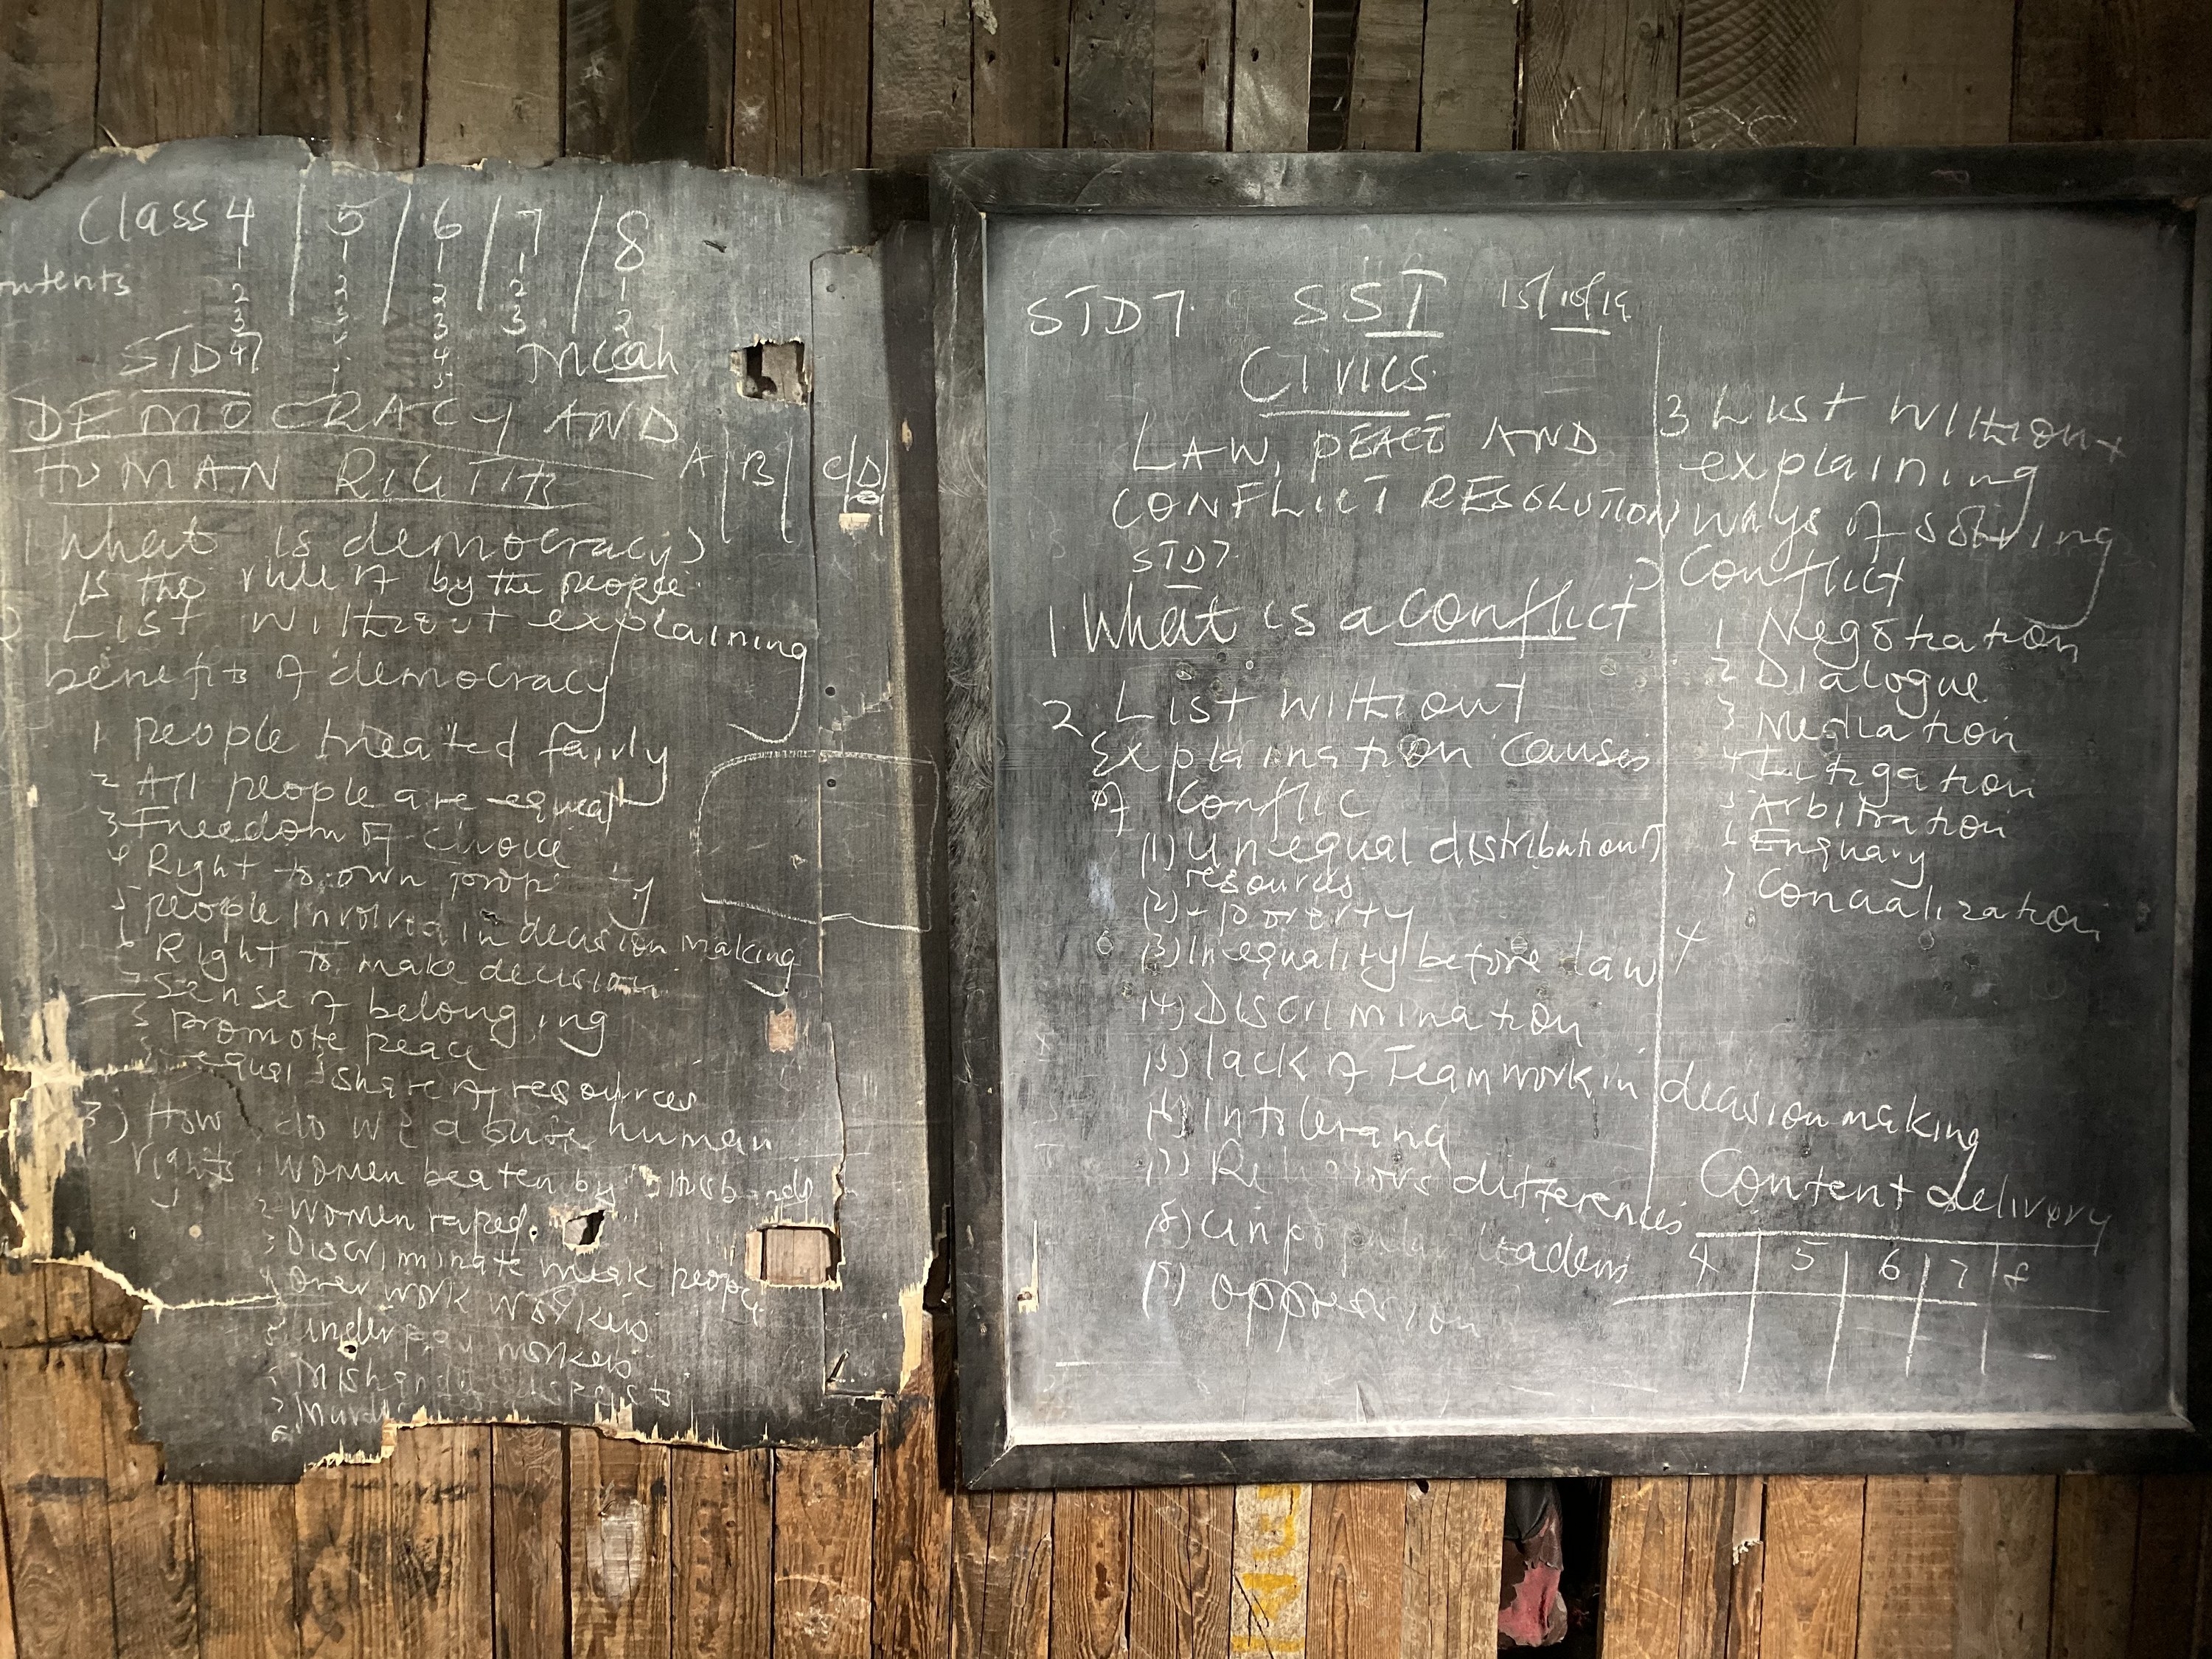 Class 4 | 5 | 6 | 7 | 8
ontents 1 1 1 1 1
2 2 2 2
3 3 3 2
STD 4 Micah
DEMOCRACY AND
HUMAN RIGHTS A | B | C | D
1 What is democracy?
is the rule of by the people.
List without explaining
benefits of democracy
1 people treated fairly
2 All people are equal
3 Freedom of choice
4 Right to own prop ty
5 people involved in decision making
6 Right to make decision
sense of belonging
promote peace
equal share of resources
3) How do we abuse human
rights 1 Women beaten by Husbands
2 Women raped.
3 Discriminate weak people
4 Over work workers
5 Underpay workers
STD 7. SST 15/10/19
CIVICS.
LAW, PEACE AND
CONFLICT RESOLUTION
STD 7.
1. What is a conflict?
2 List without
Explaination causes
of conflic
(1) Unequal distribution of
resources
(2) - poverty
(3) Inequality before law
(4) Discrimination
(5) lack of Teamwork in decision making
(6) Intolerance
(7) Religious differences
(8) Unpopular leaders
(9) oppression
3 List without
explaining
ways of solving
Conflict
1 Negotiation
2 Dialogue
3 Mediation
4 Litigation
5 Arbitration
6 Enquary
7
Content delivery
4 | 5 | 6 | 7 | 8